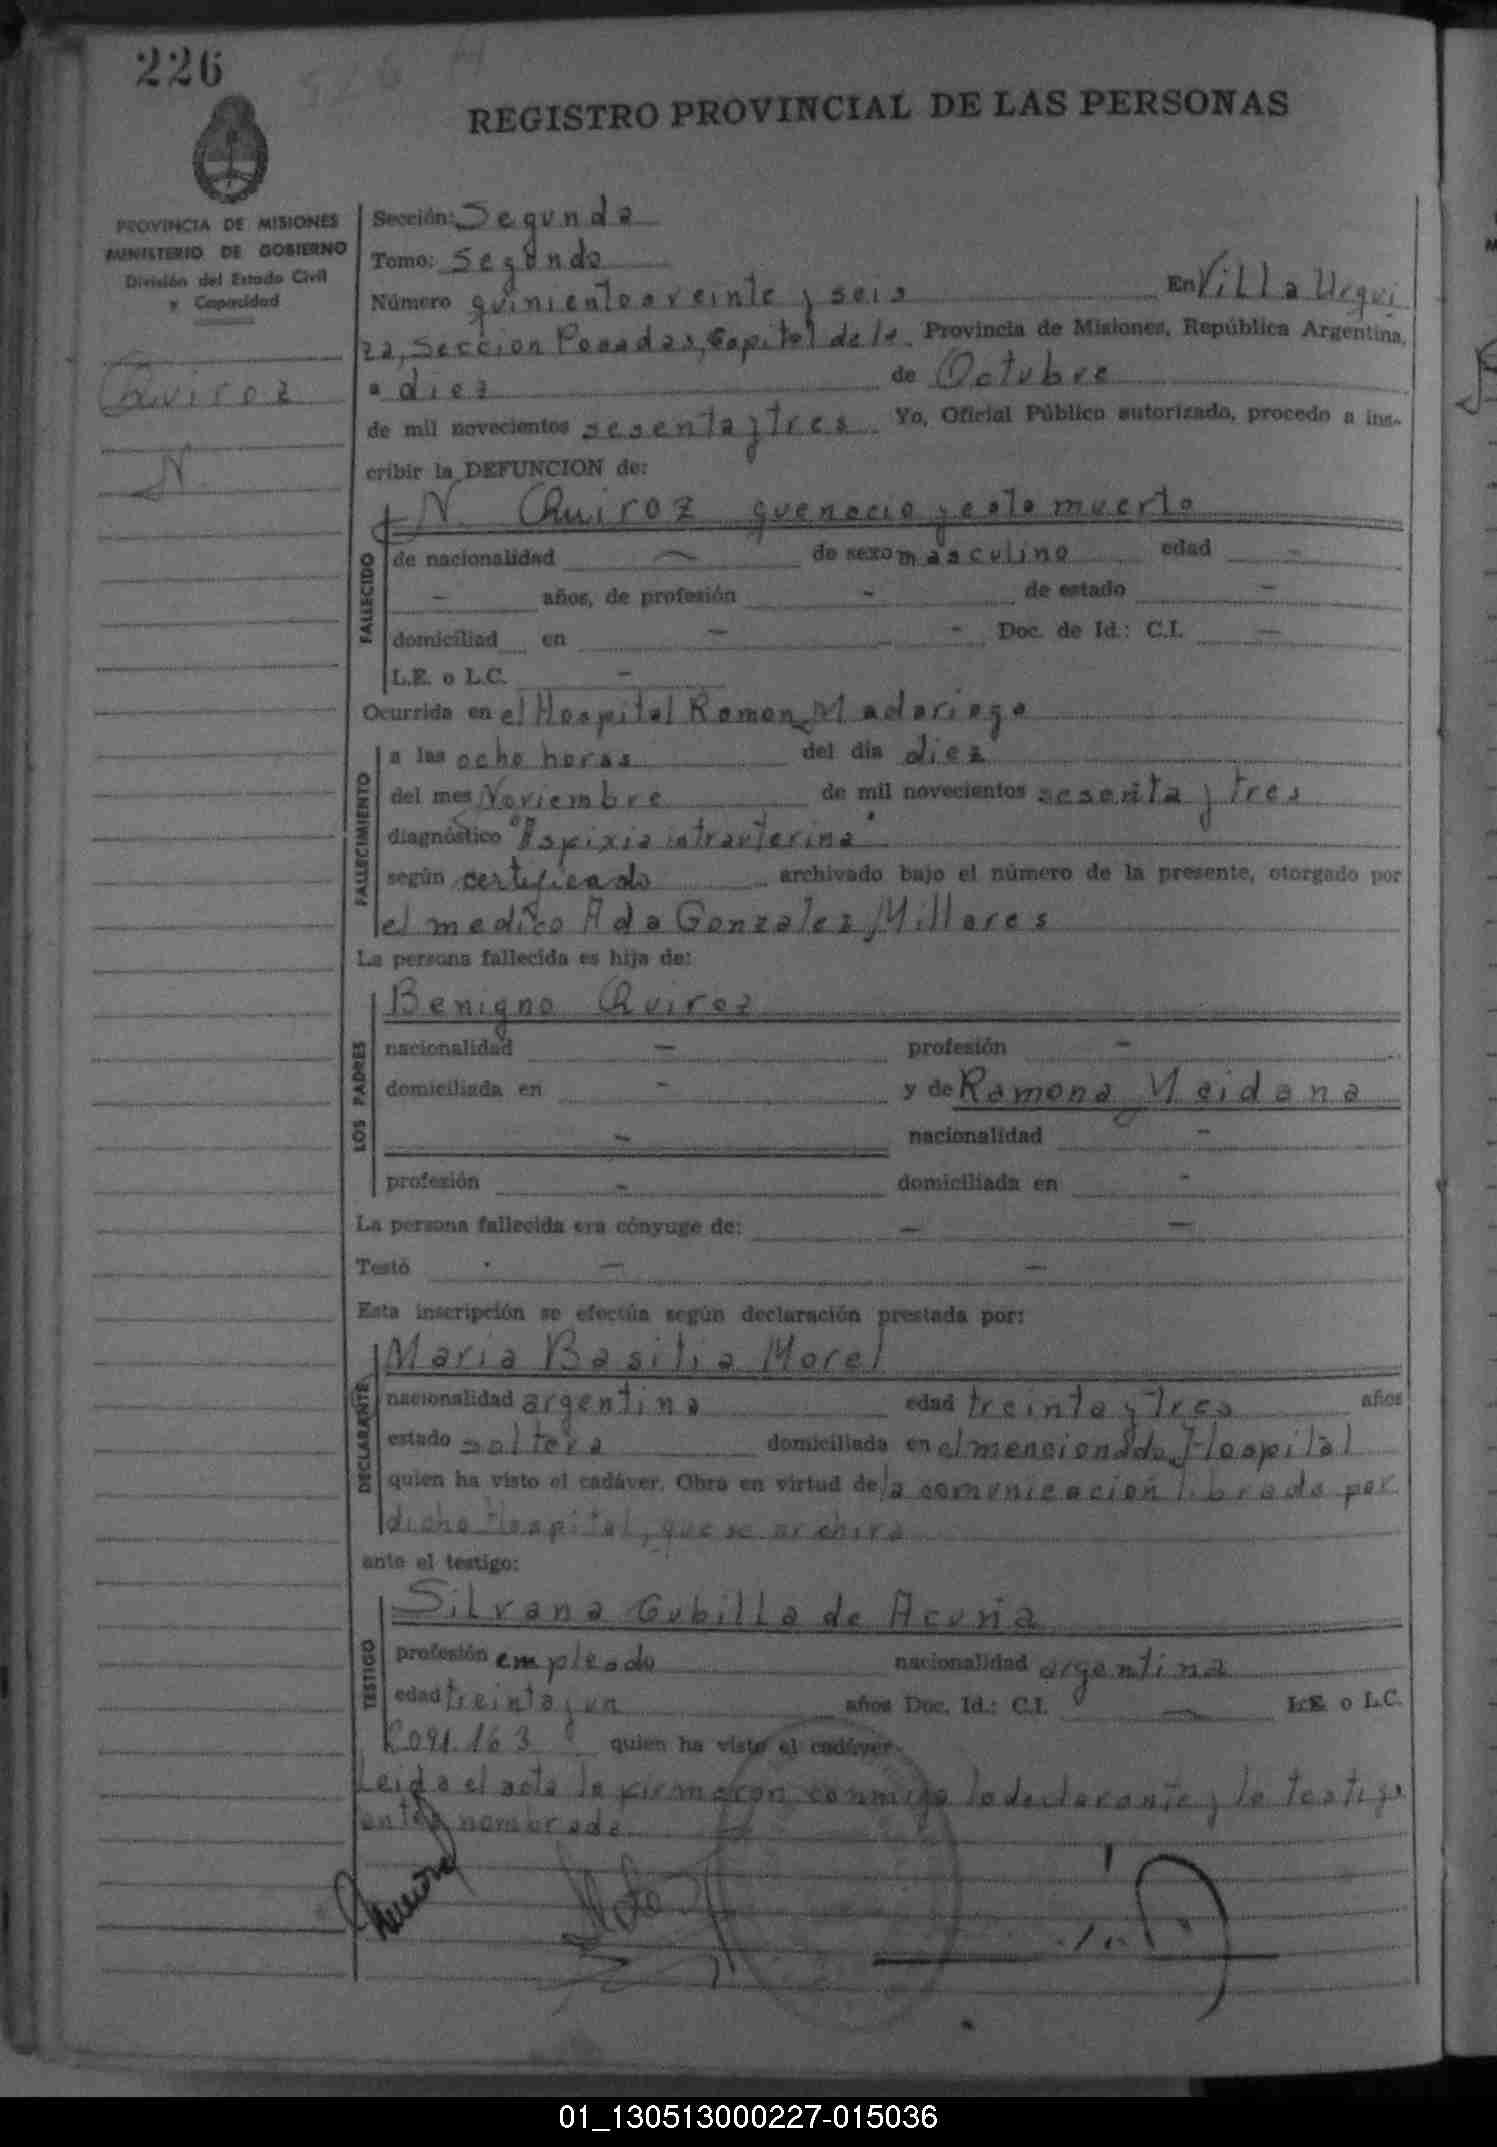 226
526 N
REGISTRO PROVINCIAL DE LAS PERSONAS
PROVINCIA DE MISIONES
MINISTERIO DE GOBIERNO
División del Estado Civil
y Capacidad
Quiroz
N.
Sección: Segunda
Tomo: Segundo
Número quinientos veinte y seis En Villa Urqui
za, Seccion Posadas, Capital de la Provincia de Misiones, República Argentina,
a diez de Octubre
de mil novecientos sesenta y tres. Yo, Oficial Público autorizado, procedo a ins-
cribir la DEFUNCION de:
N. Quiroz que nacio ya muerto
FALLECIDO
de nacionalidad — de sexo masculino edad —
— años, de profesión — de estado —
domiciliad en — - Doc. de Id.: C.I. —
L.E. o L.C. —
Ocurrida en el Hospital Ramon Madariaga
FALLECIMIENTO
a las ocho horas del día diez
del mes Noviembre de mil novecientos sesenta y tres
diagnóstico "Aspixia intrauterina"
según certificado archivado bajo el número de la presente, otorgado por
el medico Ada Gonzalez Millares
La persona fallecida es hija de:
LOS PADRES
Benigno Quiroz
nacionalidad — profesión —
domiciliada en — y de Ramona Meidana
— nacionalidad —
profesión — domiciliada en —
La persona fallecida era cónyuge de: — —
Testó — —
Esta inscripción se efectúa según declaración prestada por:
DECLARANTE
Maria Basilia Morel
nacionalidad argentina edad treinta y tres años
estado soltera domiciliada en el mencionado Hospital
quien ha visto el cadáver. Obra en virtud de la comunicación librada por
dicho Hospital, que se archiva
ante el testigo:
TESTIGO
Silvana Cubilla de Acuña
profesión empleado nacionalidad argentina
edad treinta y un años Doc. Id.: C.I. — L.E. o L.C.
2091.163 quien ha visto el cadáver.
Leida el acta la firmaron conmigo la declarante y la testigo
antes nombrada
01_130513000227-015036